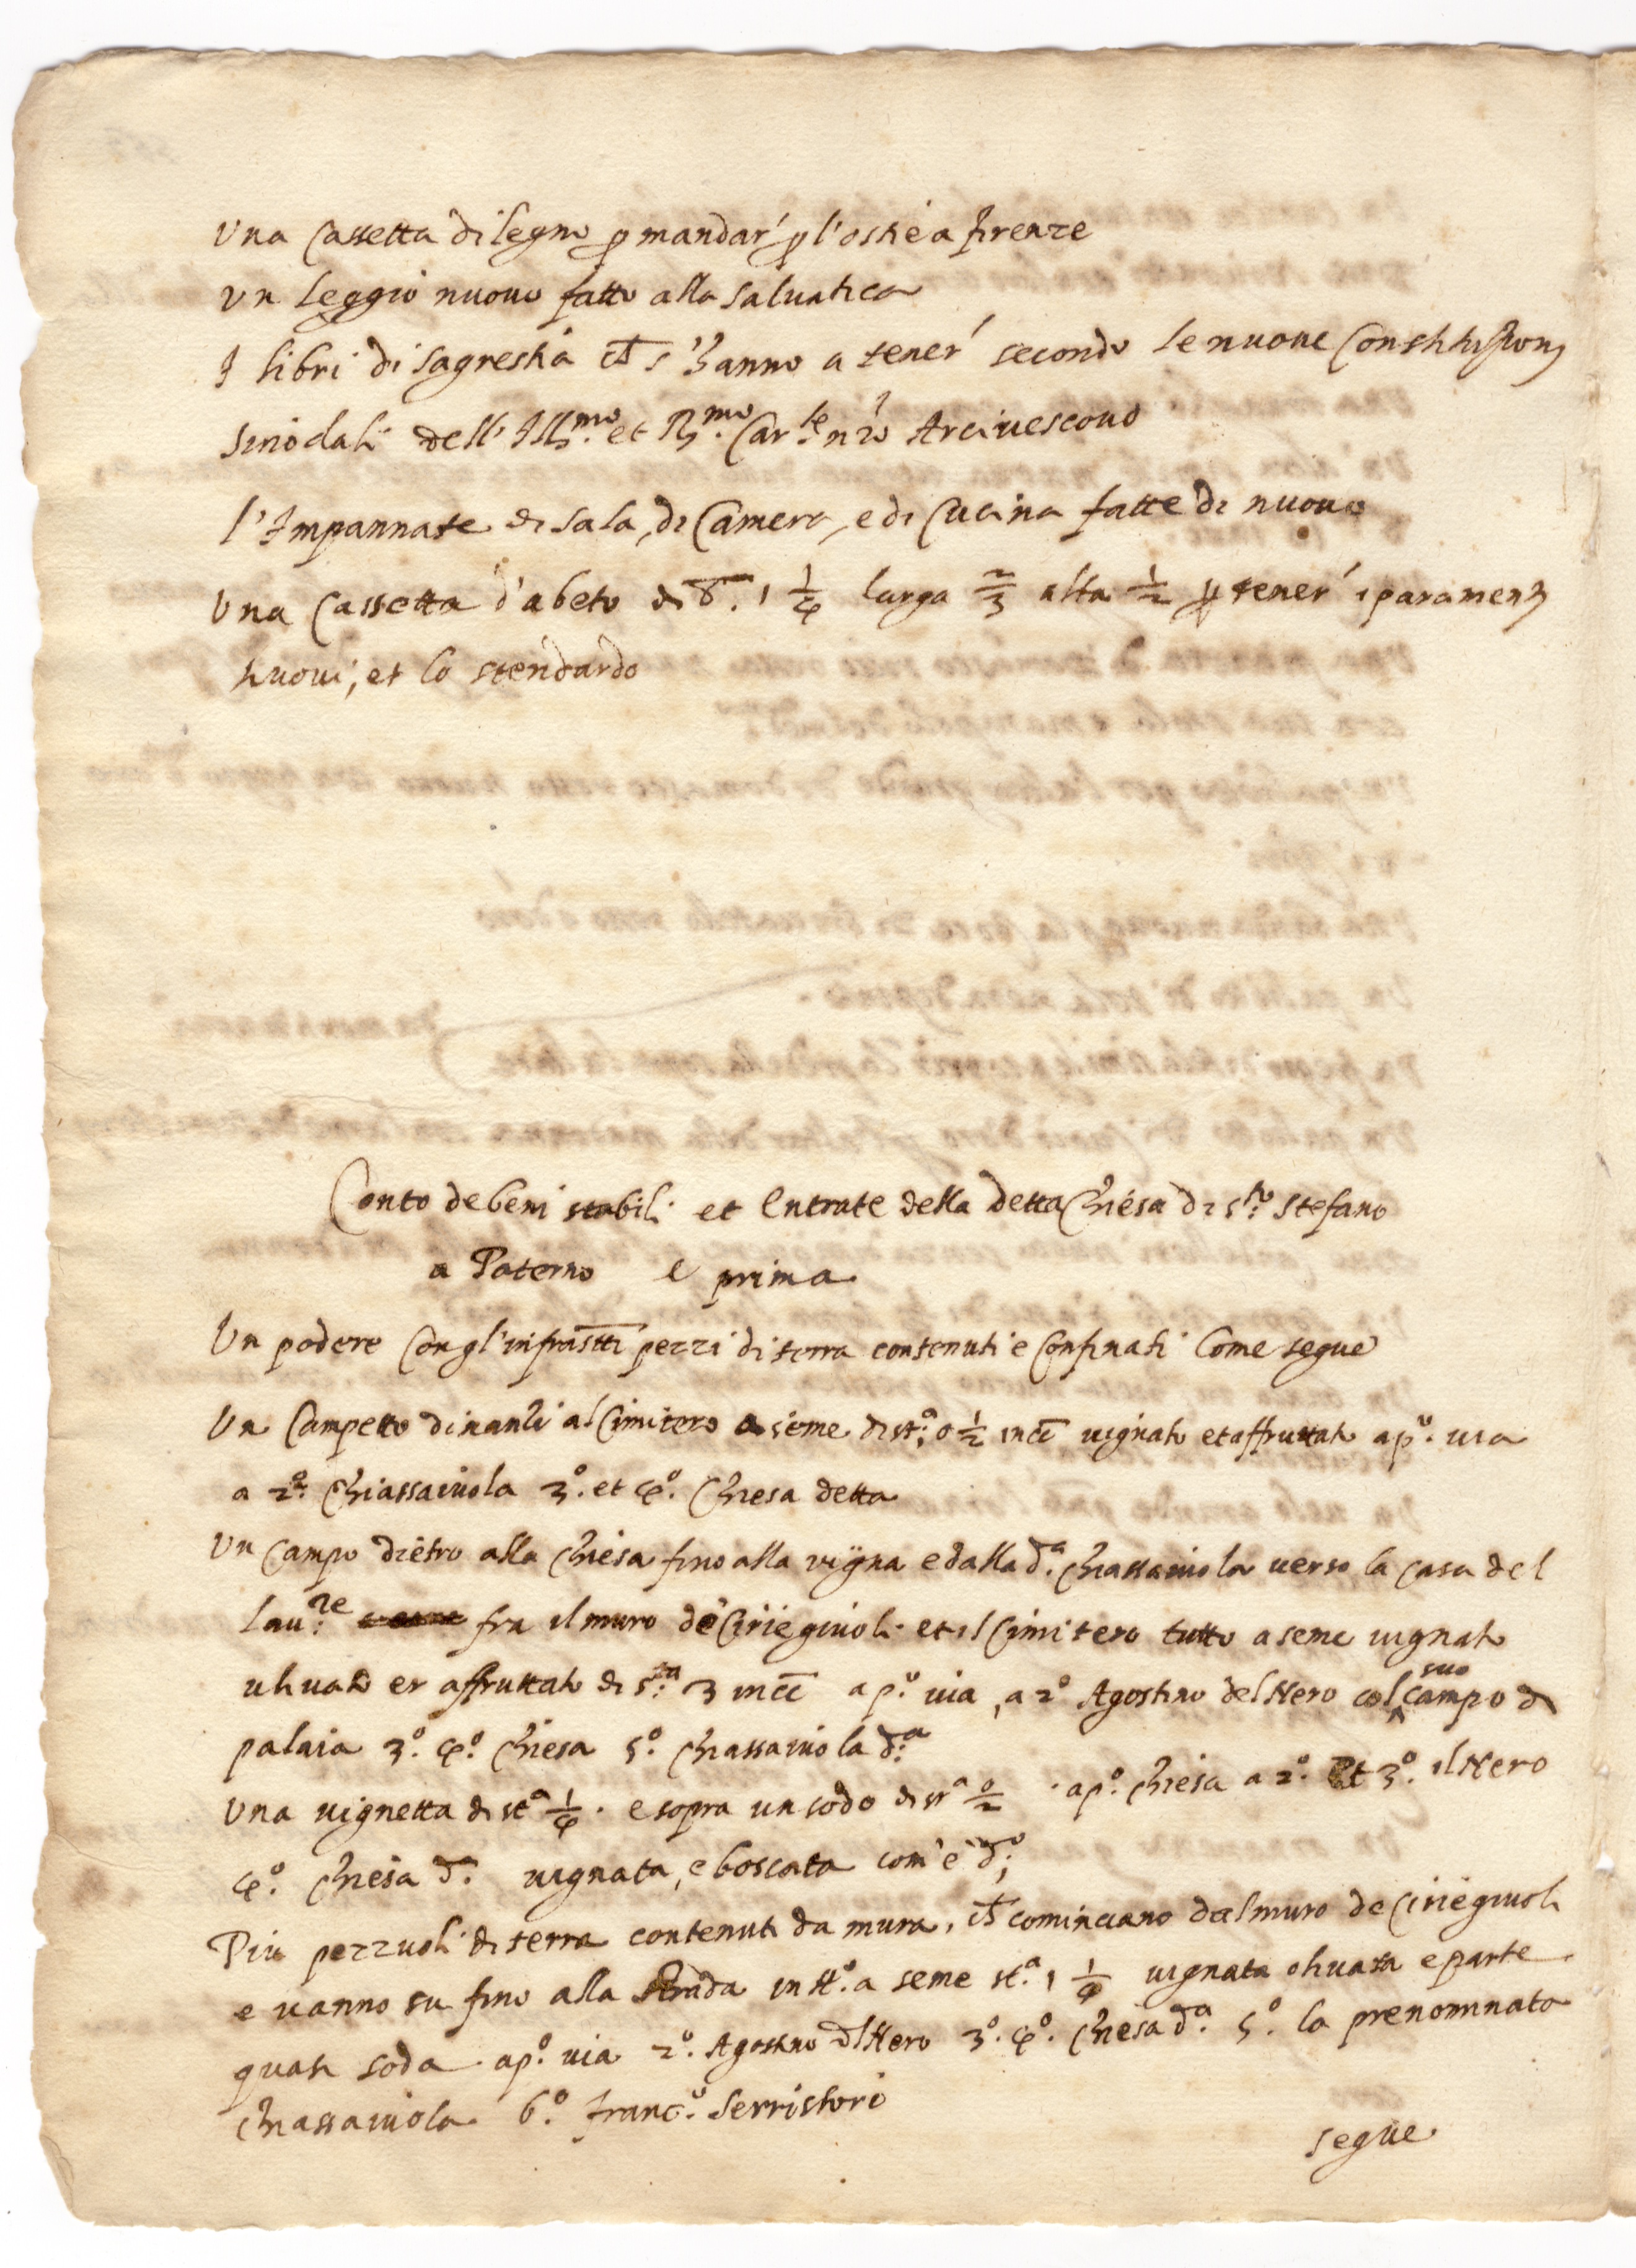 Una Cassetta di legno p mandar' p l'ostie a firenze
Un leggio nuovo fatto alla salvatica
I libri di sagrestia ch s'hanno a tener' secondo le nuove Constitutioni
sinodali dell' Ill.mo et R.mo Car.le nro Arcivescovo
l'Impannate di sala, di Camera, e di Cucina fatte di nuovo
Una Cassetta d'abeto di b. 1 1/4 larga 2/3 alta 1/2 p tener' i paramenti
nuovi, et lo stendardo
Conto de beni stabili et Entrate della detta Chiesa di s.to Stefano
a Paterno e prima
Un podere Con gl'infrastti pezzi di terra contenuti e Confinati Come segue
Un Campetto dinanzi al Cimitero a seme di st.a 0 1/2 incc vignato et affruttato a p.o via
a 2.o Chiassaiuola 3.o et 4.o Chiesa detta
Un Campo dietro alla Chiesa fino alla vigna e dalla d.a Chiassaiuola verso la Casa del
Lau.re fra il muro de Ciriegiuoli et il Cimitero tutto a seme vignato
ulivato et affruttato di s.ta 3 incc a p.o via, a 2.o Agostino del Nero col suo campo di
palaia 3.o 4.o Chiesa 5.o Chiassaiuola d.a
Una vignetta di st.a 1/4. e sopra un sodo di st.a 0/2 . a p.o Chiesa a 2.o Et 3.o il Nero
4.o Chiesa d.a vignata, e boscata com'è d.o
Più pezzuoli di terra contenuti da mura, ch cominciano dal muro de Ciriegiuoli
e vanno su fino alla Strada in tt.o a seme st.a 1 1/4 vignata olivata e parte
quasi soda a p.o via 2.o Agostino dl Nero 3.o 4.o Chiesa d.a 5.o la prenominata
Chiassaiuola 6.o Franc.o Serristori
segue